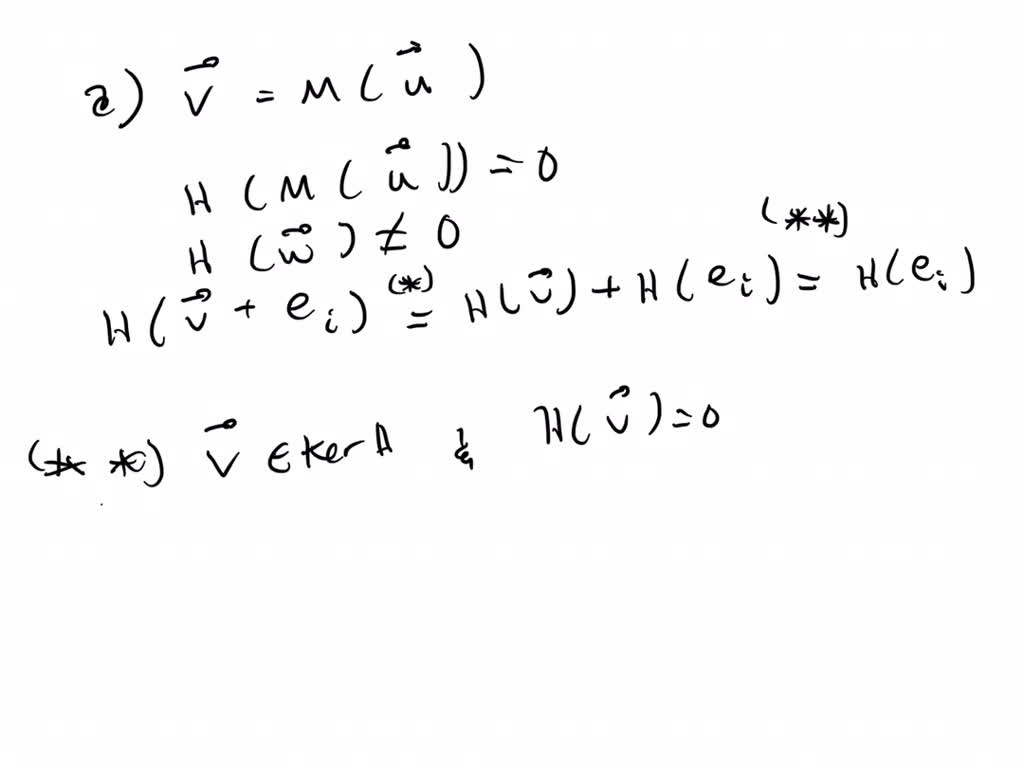 a) v⃗ = M(u⃗)
H(M(u⃗)) = 0
H(w⃗) ≠ 0
H(v⃗ + eᵢ) (*)= H(v⃗) + H(eᵢ) (**)= H(eᵢ)
(**) v⃗ ∈ Ker H & H(v⃗) = 0